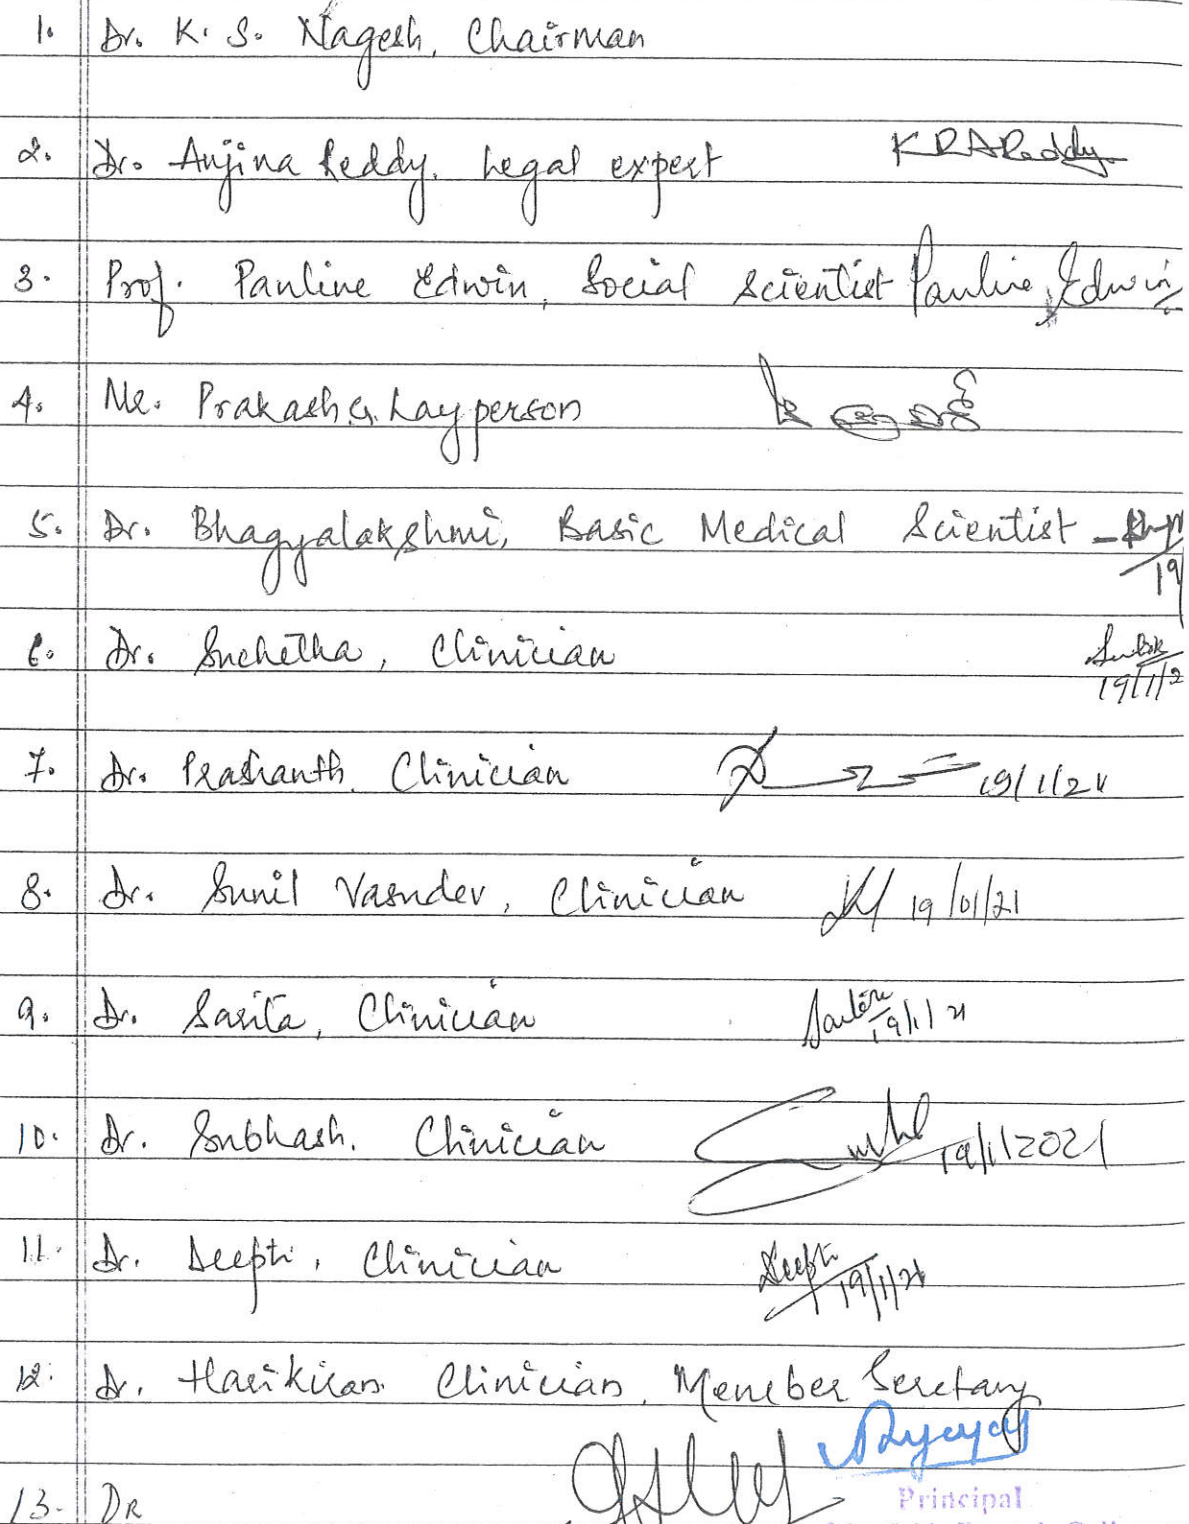 1. Dr. K. S. Nagesh, Chairman
2. Dr. Anjina Reddy, Legal expert KRAReddy
3. Prof. Pauline Edwin, Social Scientist Pauline Edwin
4. Mr. Prakash G. Layperson
5. Dr. Bhagyalakshmi, Basic Medical Scientist -
19
6. Dr. Suchetha, Clinician
19/1/2
7. Dr. Prashanth Clinician 19/1/21
8. Dr. Sunil Vasudev, Clinician 19/01/21
9. Dr. Sarita, Clinician 19/1/21
10. Dr. Subhash. Clinician 19/1/2021
11. Dr. Deepti, Clinician Deepti 19/1/21
12. Dr. Harikiran Clinician, Member Secretary
Principal
13. DR